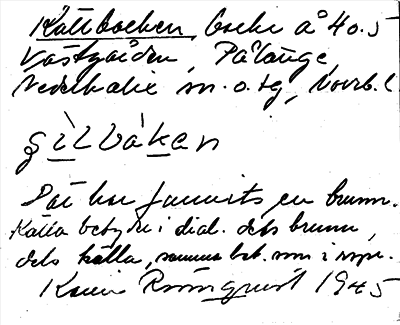 Källbacken, backe å 40.5
Västgården, Pålänge,
Nederkalix sn. o. tg, Norrb. l
Där har funnits en brunn.
Källa betyder i dial. dels brunn,
dels källa, samma bet. som i rspr.
Karin Rönnquist 1945